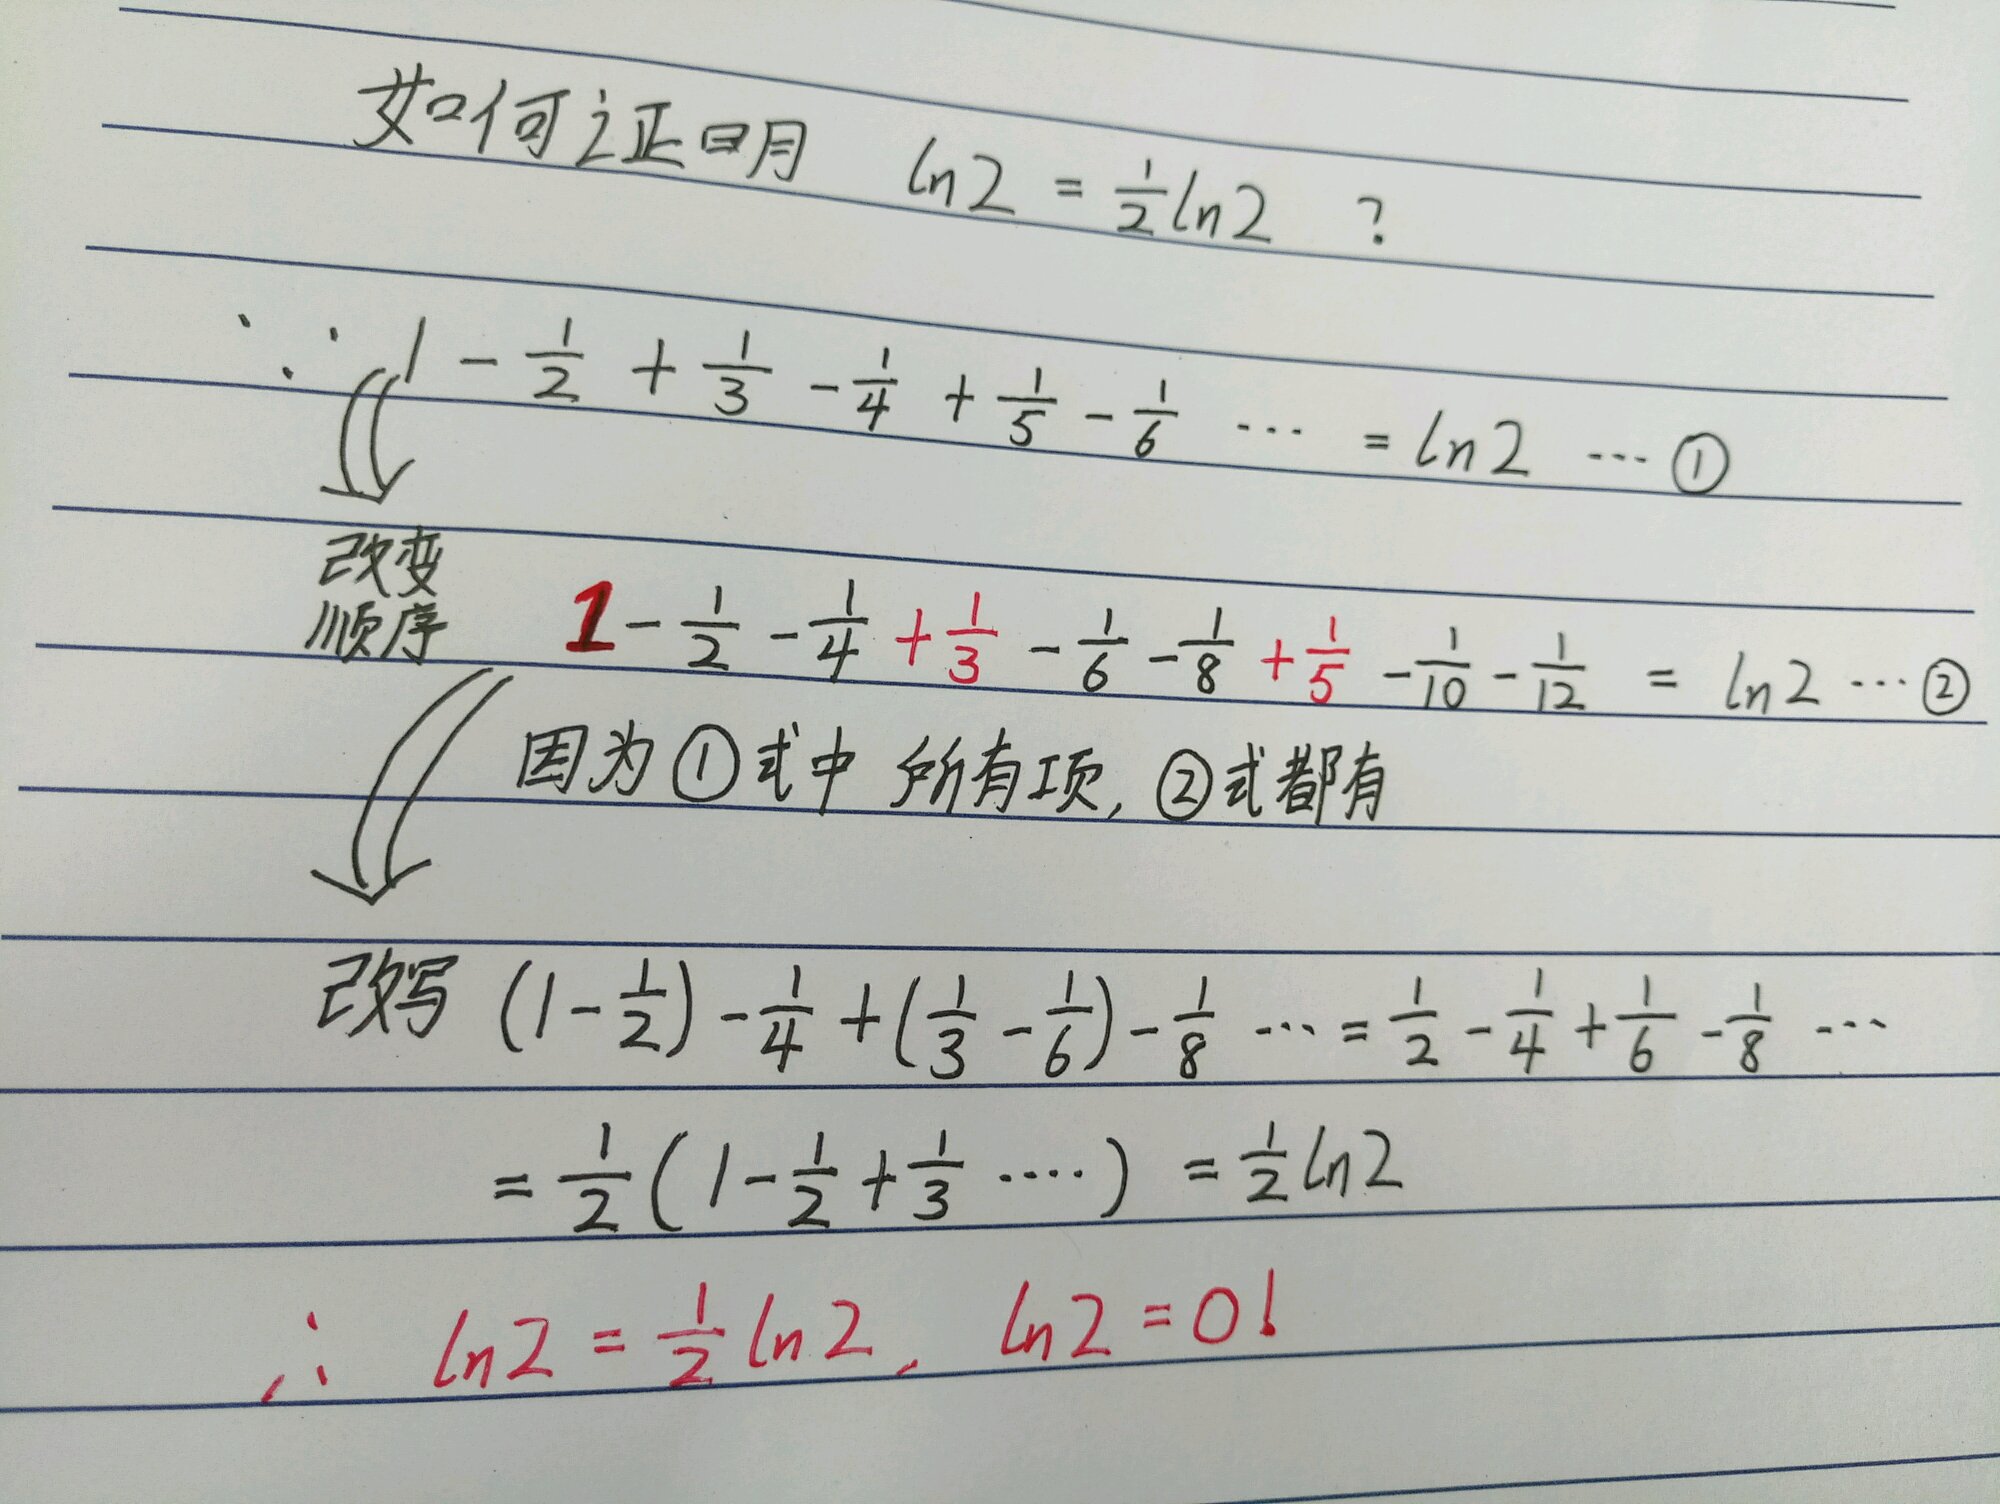 如何证明 ln2 = 1/2 ln2 ?
∵ 1 - 1/2 + 1/3 - 1/4 + 1/5 - 1/6 … = ln2 … ①
改变
顺序 1 - 1/2 - 1/4 + 1/3 - 1/6 - 1/8 + 1/5 - 1/10 - 1/12 = ln2 … ②
因为①式中 所有项, ②式都有
改写 (1 - 1/2) - 1/4 + (1/3 - 1/6) - 1/8 … = 1/2 - 1/4 + 1/6 - 1/8 …
= 1/2 (1 - 1/2 + 1/3 ....) = 1/2 ln2
∴ ln2 = 1/2 ln2, ln2 = 0!